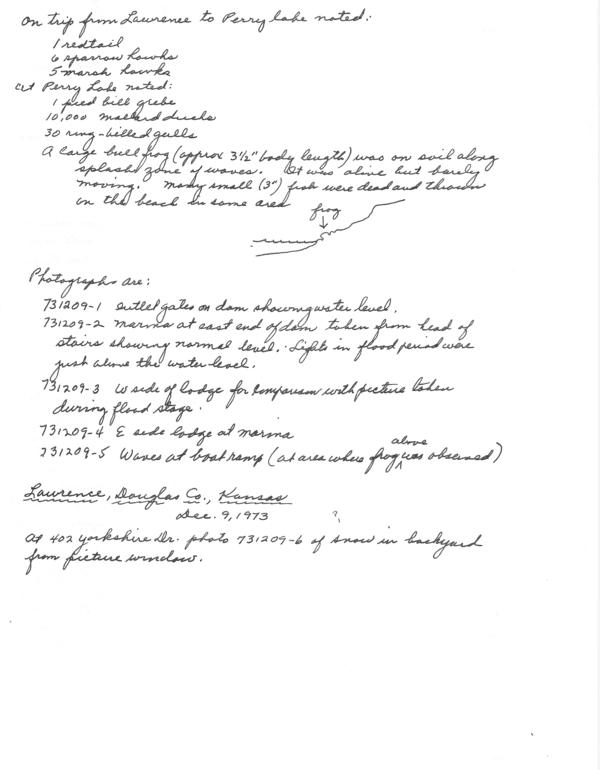 On trip from Lawrence to Perry Lake noted:
1 redtail
6 sparrow hawks
5 marsh hawks
At Perry Lake noted:
1 pied bill grebe
10,000 mallard ducks
30 ring-billed gulls
A large bull frog (approx 3½" body length) was on soil along
splash zone of waves. It was alive but barely
moving. Many small (3") fish were dead and thrown
on the beach in some area
frog
Photographs are:
731209-1 outlet gates on dam showing water level.
731209-2 Marina at east end of dam taken from head of
stairs showing normal level. Lights in flood period were
just above the water level.
731209-3 W side of lodge for comparison with picture taken
during flood stage.
731209-4 E side lodge at marina
731209-5 Waves at boat ramp (at area where frog was observed)
above
Lawrence, Douglas Co., Kansas
Dec. 9, 1973
?
At 402 Yorkshire Dr. photo 731209-6 of snow in backyard
from picture window.